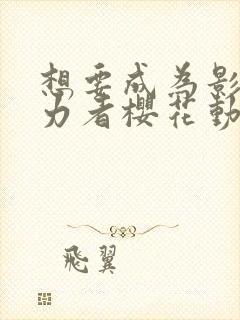 想要成为影
力者櫻花動
飛翼